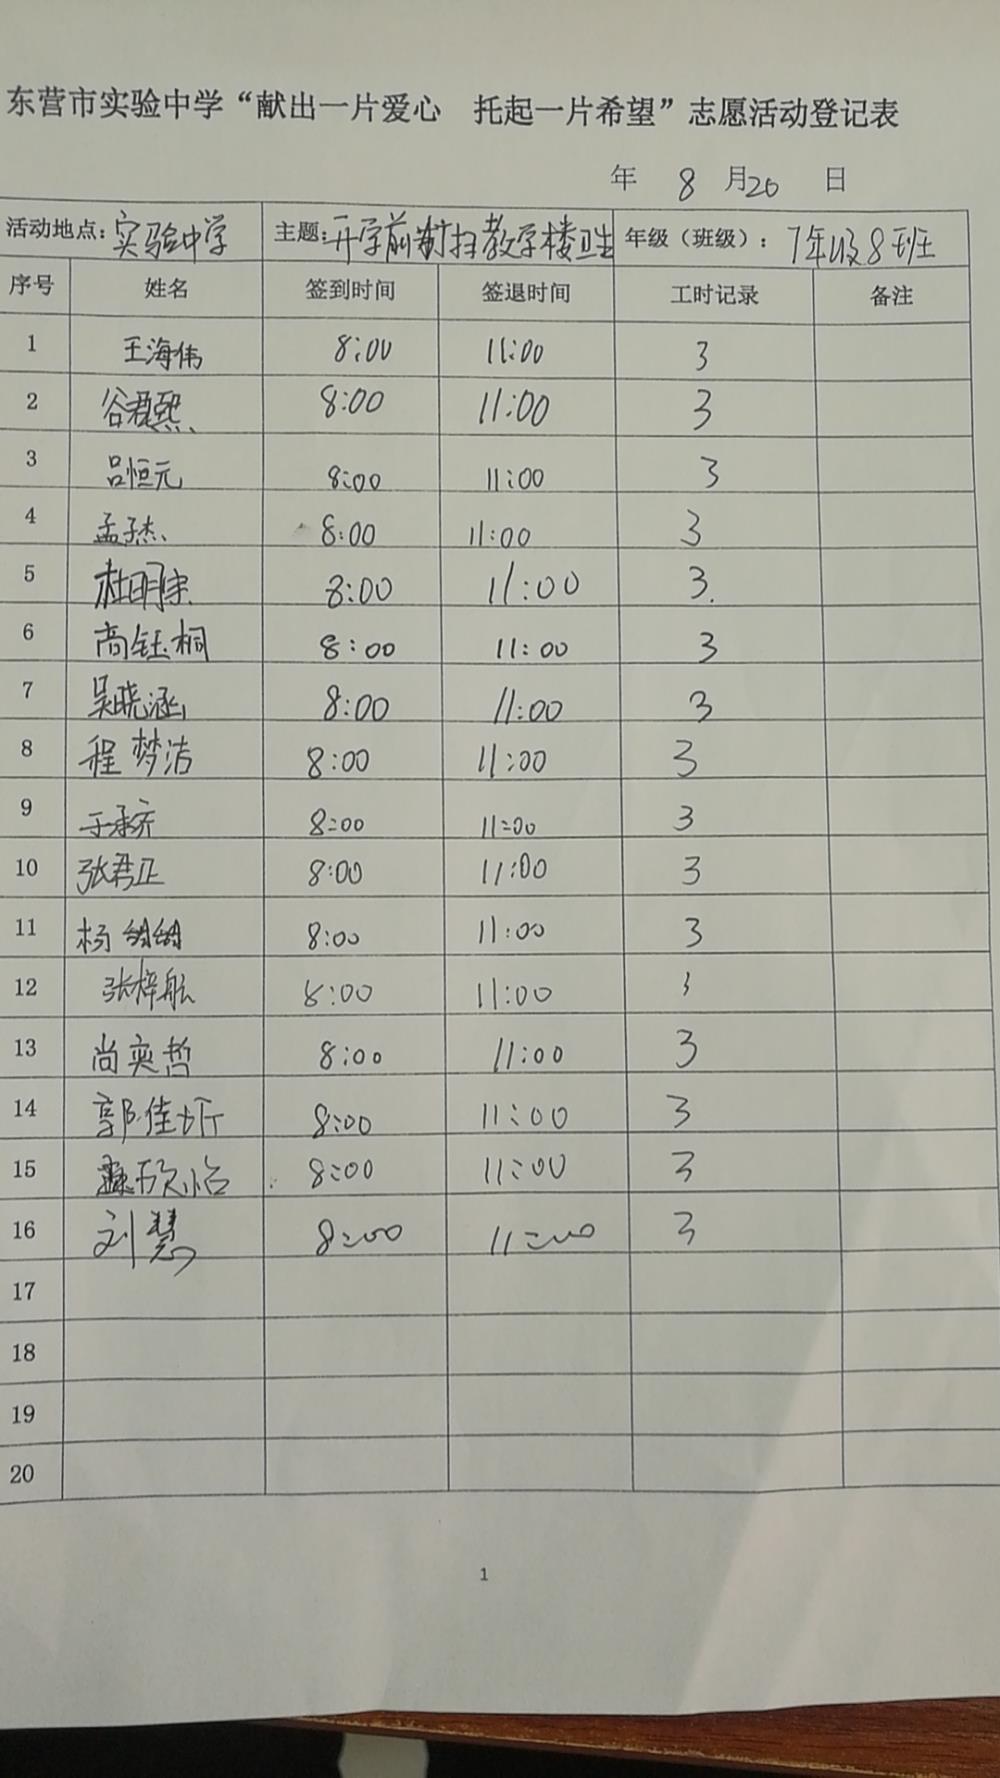 东营市实验中学“献出一片爱心 托起一片希望”志愿活动登记表
年 8 月20 日
活动地点:实验中学 主题:开学前打扫教学楼卫生 年级（班级）: 7年级8班
序号 姓名 签到时间 签退时间 工时记录 备注
1 王海伟 8:00 11:00 3
2 谷君熙 8:00 11:00 3
3 吕恒元 8:00 11:00 3
4 孟子杰 8:00 11:00 3
5 杜明宗 8:00 11:00 3.
6 商钰桐 8:00 11:00 3
7 吴晓涵 8:00 11:00 3
8 程梦洁 8:00 11:00 3
9 于承齐 8:00 11:00 3
10 张君正 8:00 11:00 3
11 杨 8:00 11:00 3
12 张梓航 8:00 11:00 3
13 尚奕哲 8:00 11:00 3
14 郭佳圻 8:00 11:00 3
15 欣怡 8:00 11:00 3
16 刘慧 8:00 11:00 3
17
18
19
20
1